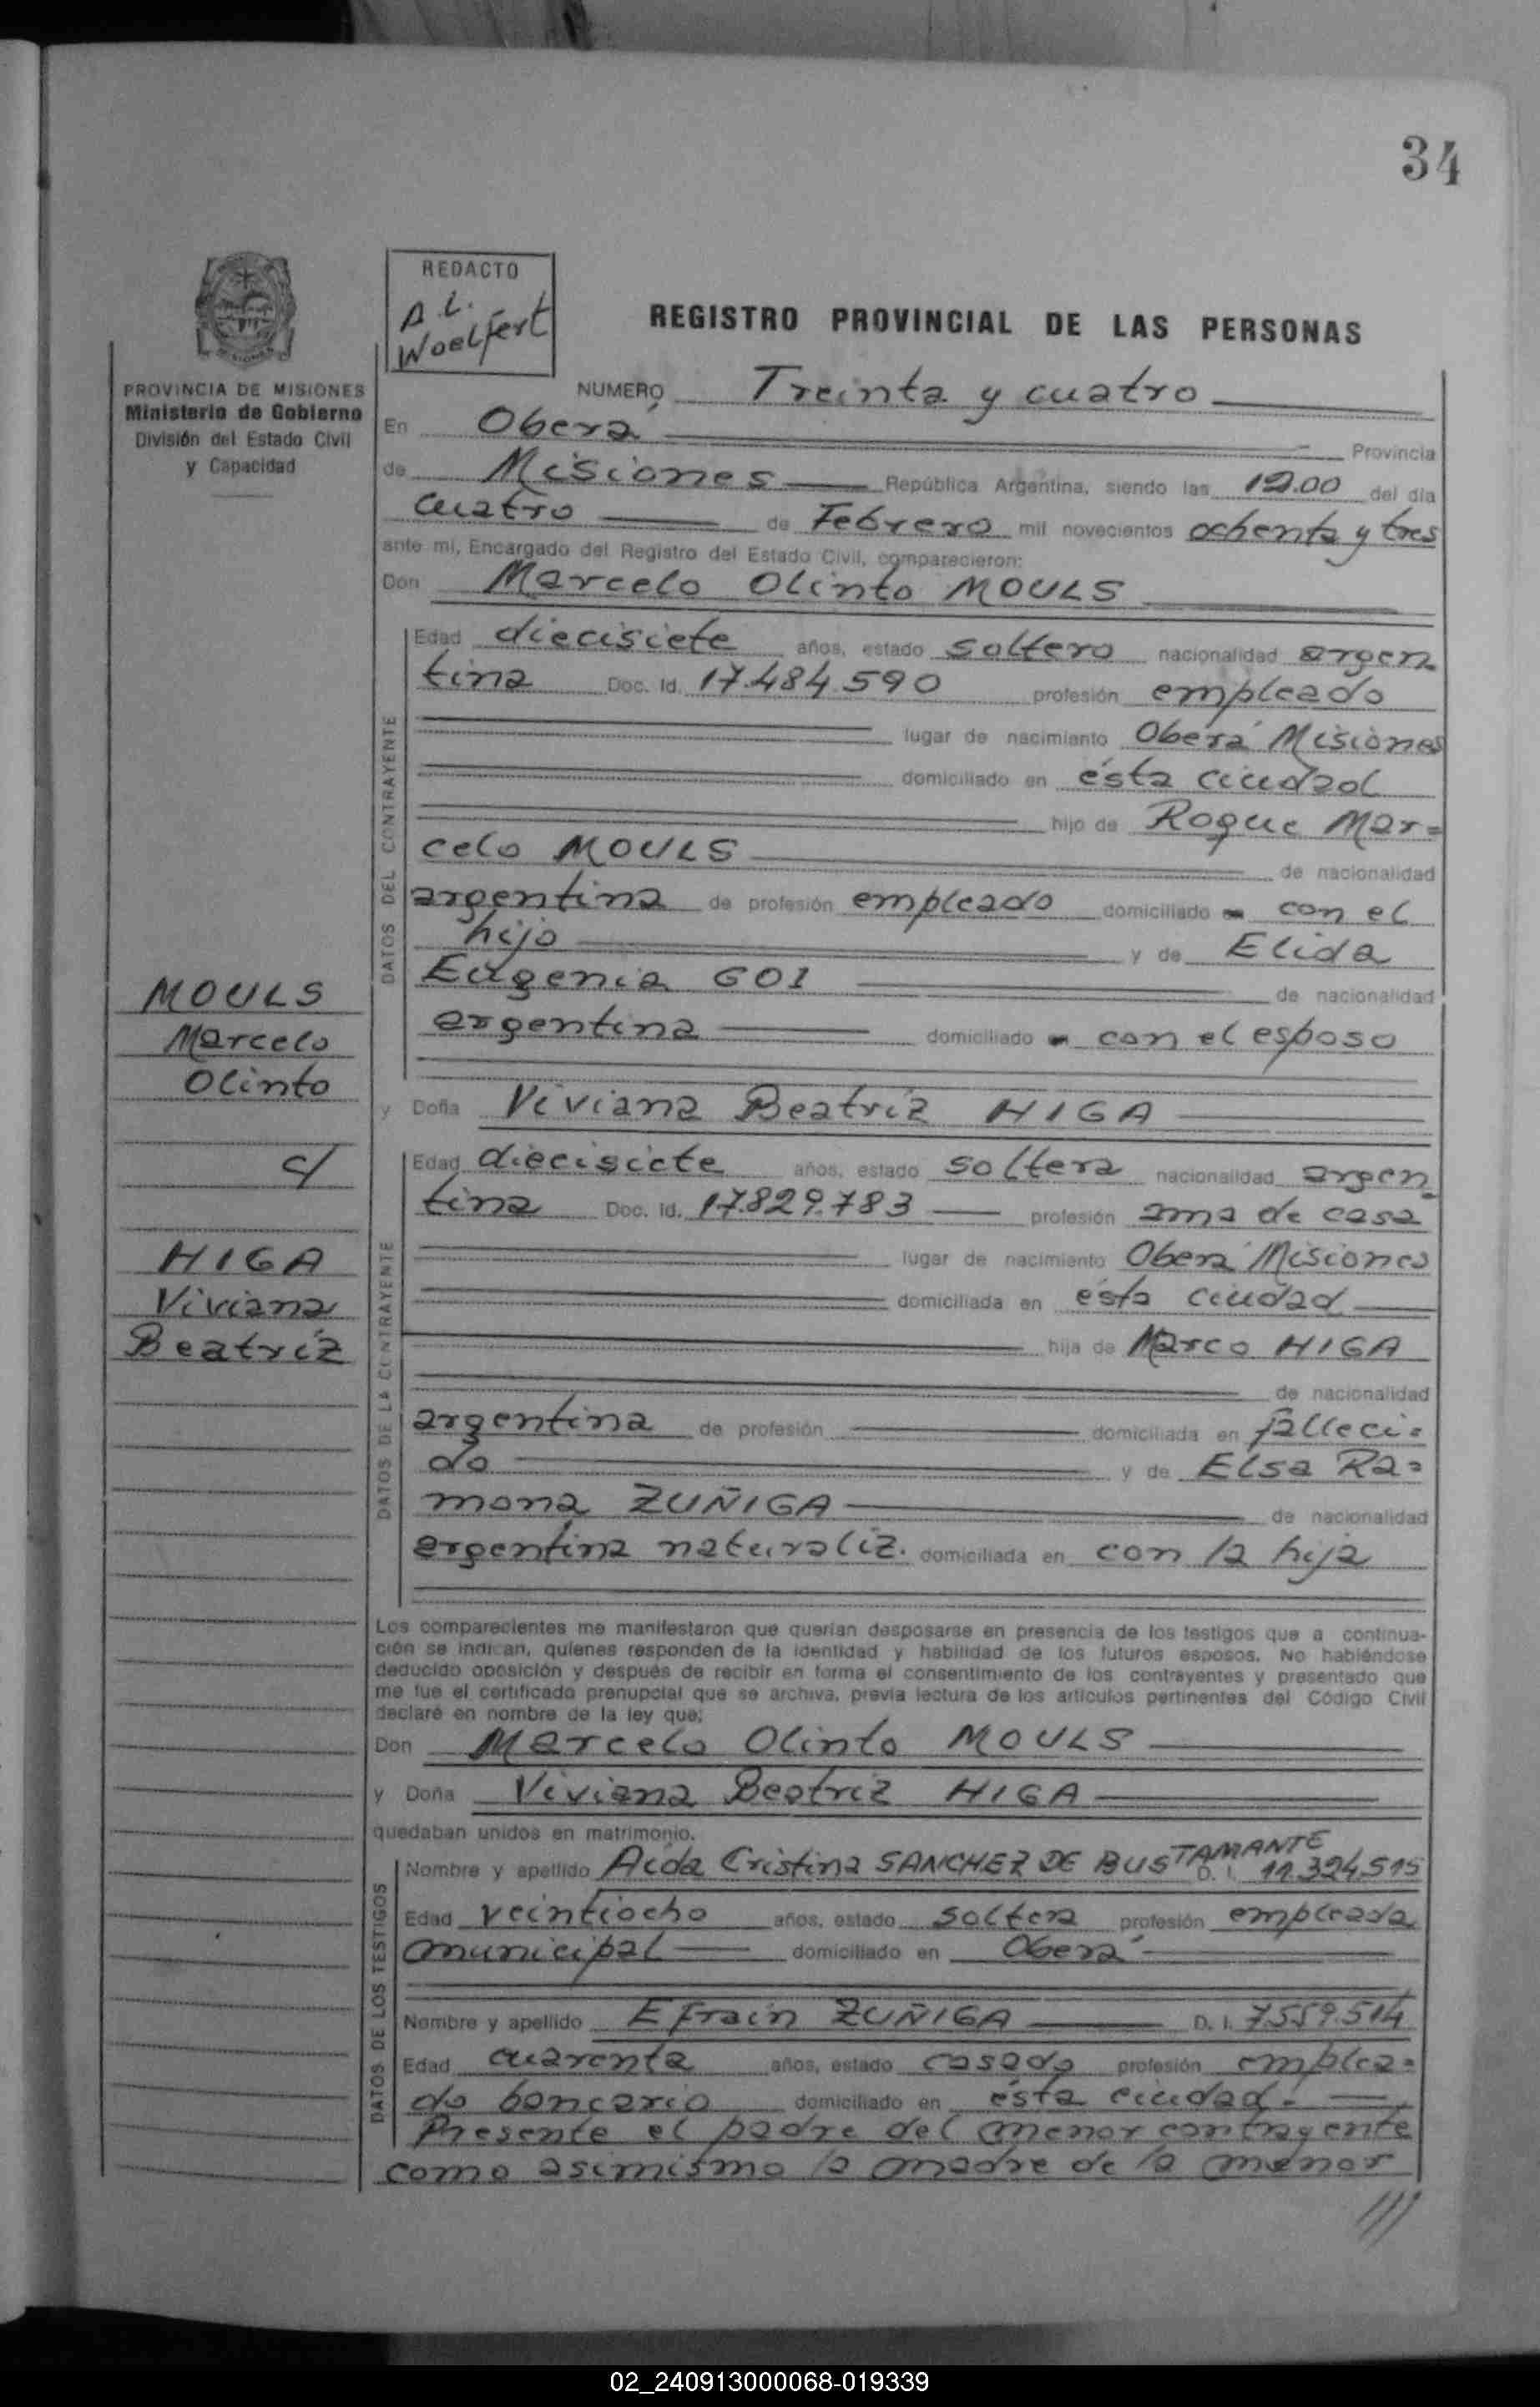 34
REDACTO
A. L.
Woelfert
REGISTRO PROVINCIAL DE LAS PERSONAS
PROVINCIA DE MISIONES
Ministerio de Gobierno
División del Estado Civil
y Capacidad
NUMERO Treinta y cuatro
En Oberá Provincia
de Misiones República Argentina, siendo las 12.00 del día
cuatro de Febrero mil novecientos ochenta y tres
ante mí, Encargado del Registro del Estado Civil, comparecieron:
Don Marcelo Olinto MOULS
DATOS DEL CONTRAYENTE
Edad diecisiete años, estado soltero nacionalidad argen
tina Doc. Id. 17.484.590 profesión empleado
lugar de nacimiento Oberá Misiones
domiciliado en ésta ciudad
hijo de Roque Mar=
celo MOULS de nacionalidad
argentina de profesión empleado domiciliado con el
hijo y de Elida
Eugenia GOI de nacionalidad
argentina domiciliado con el esposo
MOULS
Marcelo
Olinto
c/
HIGA
Viviana
Beatríz
y Doña Viviana Beatríz HIGA
DATOS DE LA CONTRAYENTE
Edad diecisiete años, estado soltera nacionalidad argen
tina Doc. Id. 17.829.783 profesión ama de casa
lugar de nacimiento Oberá Misiones
domiciliada en ésta ciudad
hija de Marco HIGA
de nacionalidad
argentina de profesión domiciliada en falleci=
do y de Elsa Ra=
mona ZUÑIGA de nacionalidad
argentina naturaliz. domiciliada en con la hija
Los comparecientes me manifestaron que querían desposarse en presencia de los testigos que a continua-
ción se indican, quienes responden de la identidad y habilidad de los futuros esposos. No habiéndose
deducido oposición y después de recibir en forma el consentimiento de los contrayentes y presentado que
me fue el certificado prenupcial que se archiva, previa lectura de los artículos pertinentes del Código Civil
declaré en nombre de la ley que;
Don Marcelo Olinto MOULS
y Doña Viviana Beatriz HIGA
quedaban unidos en matrimonio.
DATOS DE LOS TESTIGOS
Nombre y apellido Aida Cristina SANCHEZ DE BUSTAMANTE D. I. 11.324.515
Edad veintiocho años, estado soltera profesión empleada
municipal domiciliado en Oberá
Nombre y apellido Efraín ZUÑIGA D. I. 7.559.514
Edad cuarenta años, estado casado profesión emplea=
do bancario domiciliado en ésta ciudad.
Presente el padre del menor contrayente
como asimismo la madre de la menor
///
02_240913000068-019339